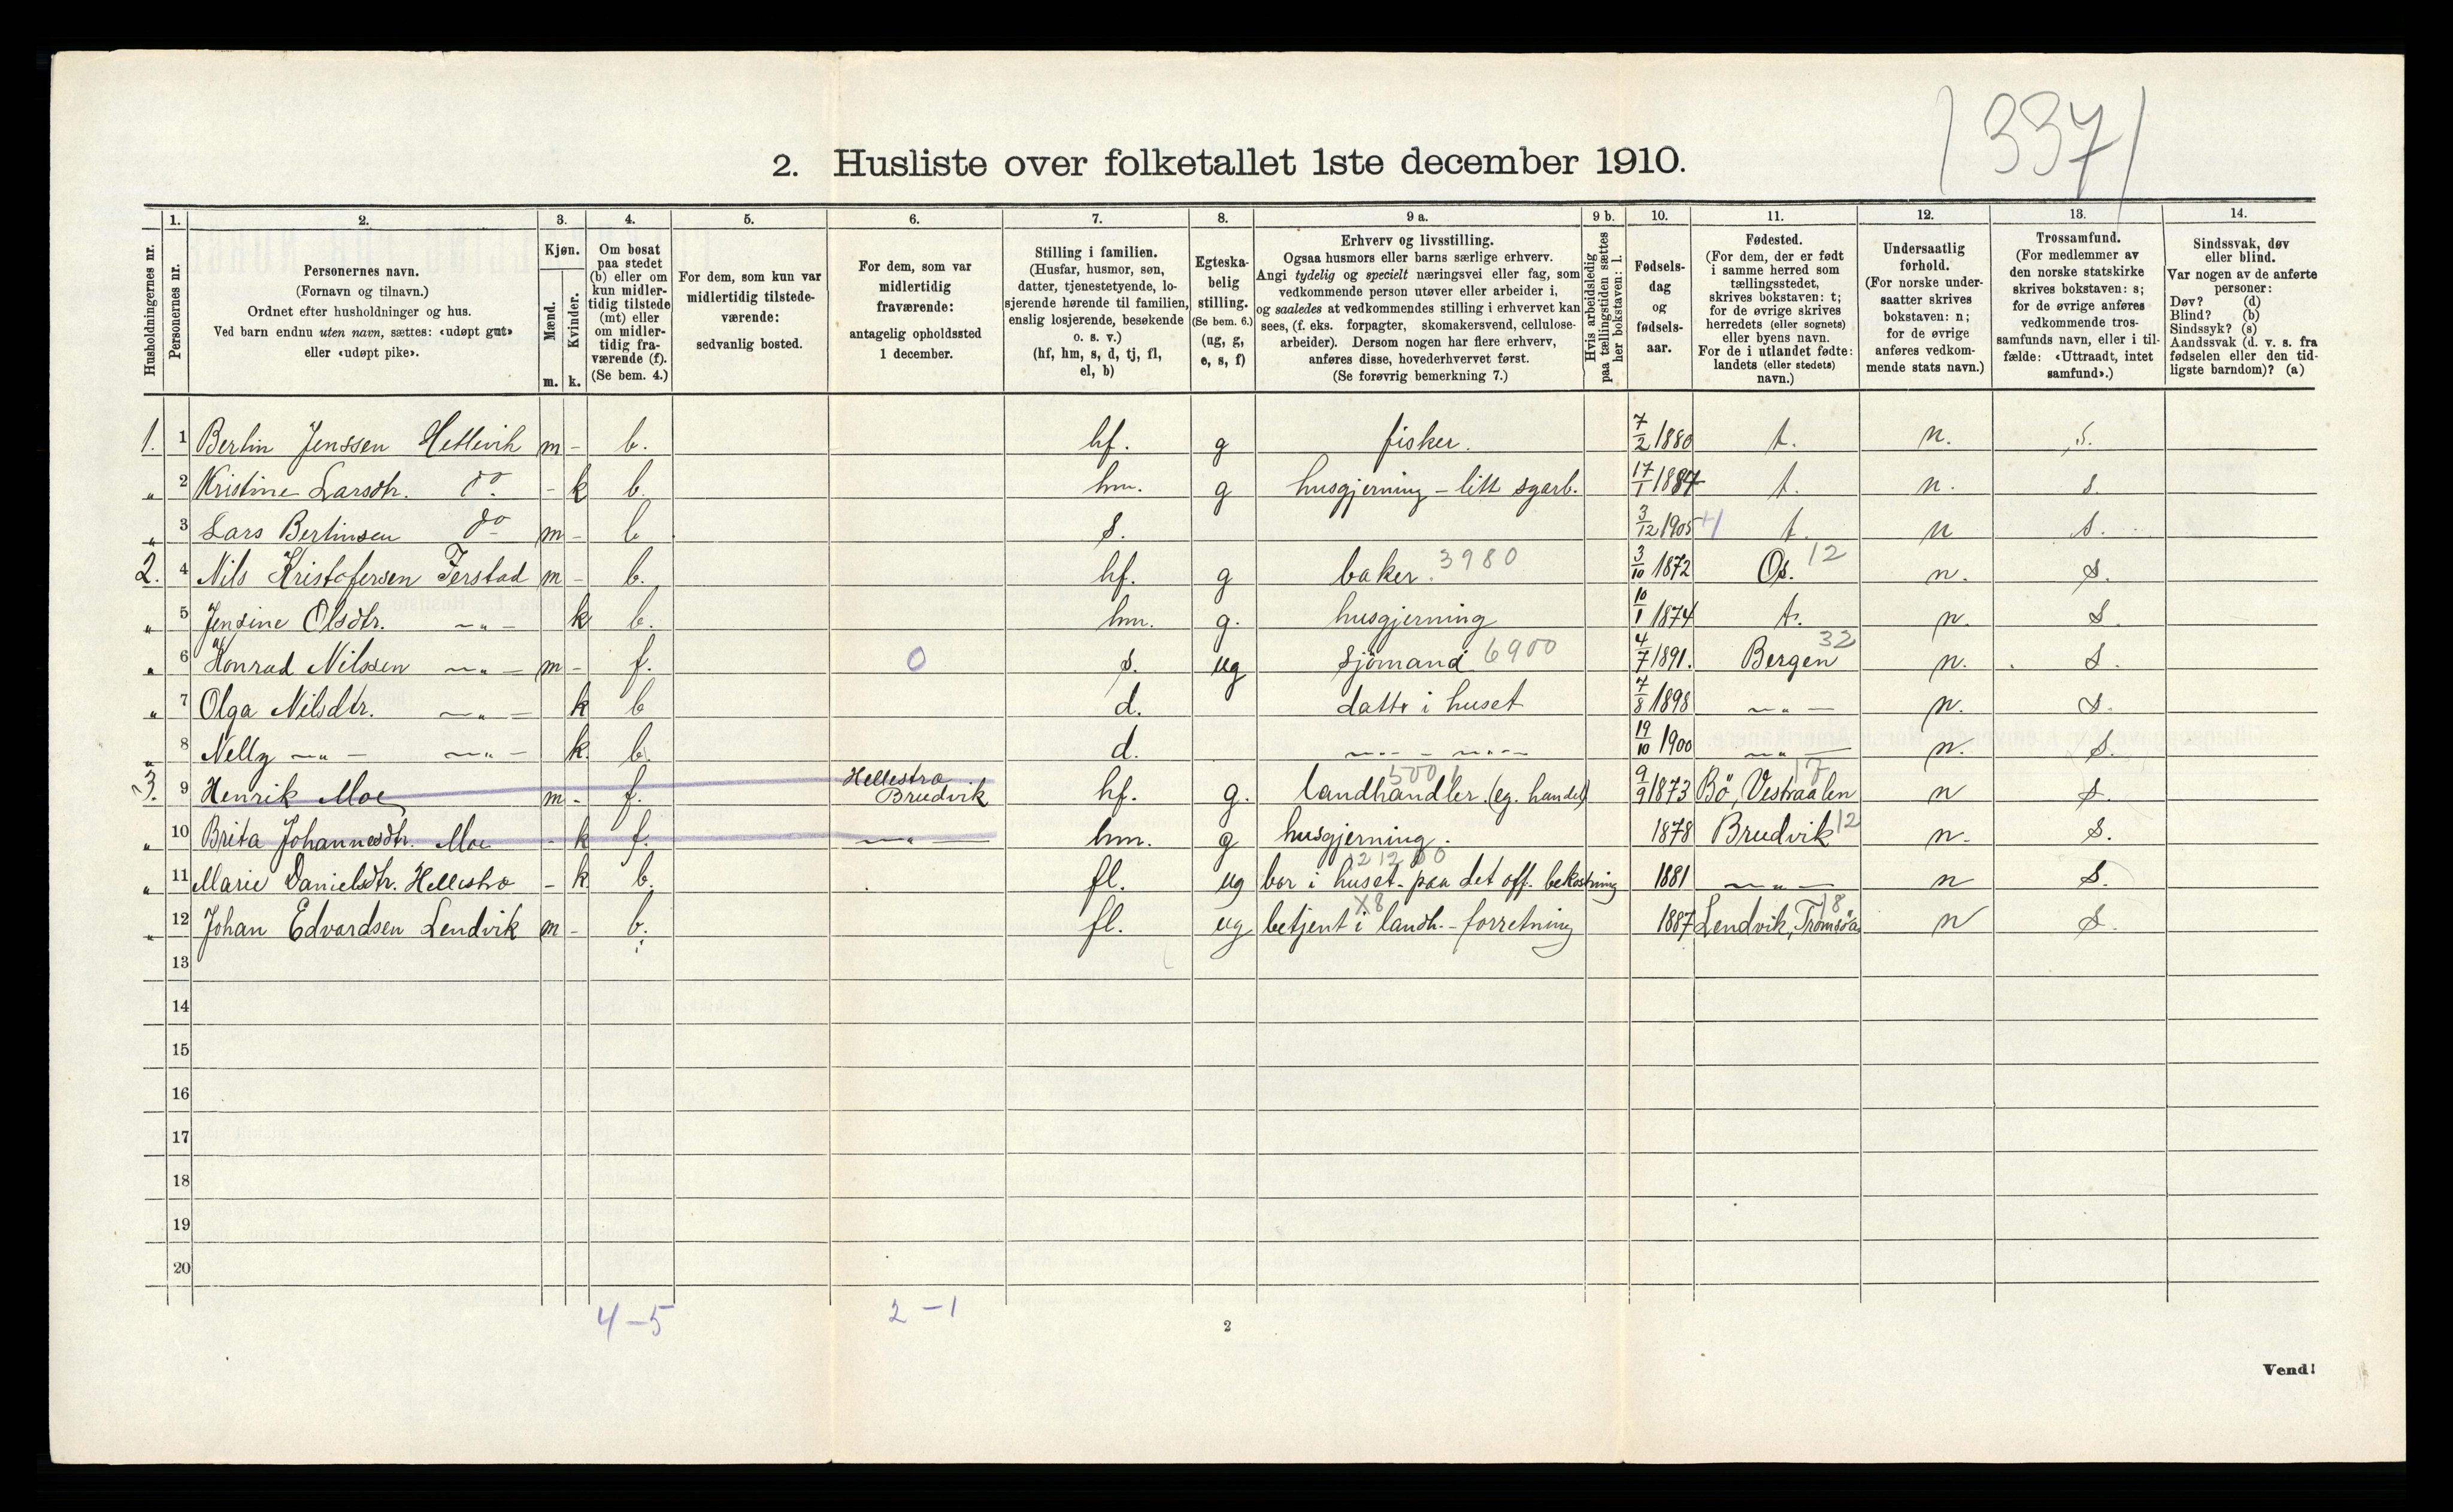 | 337 |
2. Husliste over folketallet 1ste december 1910.
Husholdningernes nr.
1. Personernes nr.
2. Personernes navn. (Fornavn og tilnavn.) Ordnet efter husholdninger og hus. Ved barn endnu uten navn, sættes: «udøpt gut» eller «udøpt pike».
3. Kjøn. Mænd. m. Kvinder. k.
4. Om bosat paa stedet (b) eller om kun midlertidig tilstede (mt) eller om midlertidig fraværende (f). (Se bem. 4.)
5. For dem, som kun var midlertidig tilstedeværende: sedvanlig bosted.
6. For dem, som var midlertidig fraværende: antagelig opholdssted 1 december.
7. Stilling i familien. (Husfar, husmor, søn, datter, tjenestetyende, losjerende hørende til familien, enslig losjerende, besøkende o. s. v.) (hf, hm, s, d, tj, fl, el, b)
8. Egteskabelig stilling. (Se bem. 6.) (ug, g, e, s, f)
9 a. Erhverv og livsstilling. Ogsaa husmors eller barns særlige erhverv. Angi tydelig og specielt næringsvei eller fag, som vedkommende person utøver eller arbeider i, og saaledes at vedkommendes stilling i erhvervet kan sees, (f. eks. forpagter, skomakersvend, cellulosearbeider). Dersom nogen har flere erhverv, anføres disse, hovederhvervet først. (Se forøvrig bemerkning 7.)
9 b. Hvis arbeidsledig paa tællingstiden sættes her bokstaven: l.
10. Fødselsdag og fødselsaar.
11. Fødested. (For dem, der er født i samme herred som tællingsstedet, skrives bokstaven: t; for de øvrige skrives herredets (eller sognets) eller byens navn. For de i utlandet fødte: landets (eller stedets) navn.)
12. Undersaatlig forhold. (For norske undersaatter skrives bokstaven: n; for de øvrige anføres vedkommende stats navn.)
13. Trossamfund. (For medlemmer av den norske statskirke skrives bokstaven: s; for de øvrige anføres vedkommende trossamfunds navn, eller i tilfælde: «Uttraadt, intet samfund».)
14. Sindssvak, døv eller blind. Var nogen de av anførte personer: Døv? (d) Blind? (b) Sindssyk? (s) Aandssvak (d. v. s. fra fødselen eller den tidligste barndom)? (a)
1. 1 Berlin Jenssen Hetlevik m - b. hf. g fisker. 7/2 1880 t. n. s.
" 2 Kristine Larsdtr. do - k b. hm. g husgjerning - litt syarb. 17/1 1884 t. n. s.
" 3 Lars Berlinsen do m - b s. 3/12 1905 t. n s.
2. 4 Nils Kristofersen Jerstad m - b. hf. g baker. 3980 3/10 1872 Os. 12 n. s.
" 5 Jensine Olsdtr. —"— k b. hm. g. husgjerning 10/1 1874 t. n. s.
" 6 Konrad Nilssen —"— m - f. 0 s. ug sjömand 6900 4/7 1891. Bergen 32 n. s.
" 7 Olga Nilsdtr. —"— k b d. datter i huset 7/8 1898 —"— n. s.
" 8 Nelly —"— —"— k. b. d. —"— —"— 19/10 1900 —"— n. s.
3. 9 Henrik Moe m - f. Hellestra Brudvik hf. g. landhandler (eg. handel) 5001 9/9 1873 Bö, Vestraalen 17 n s.
" 10 Brita Johannesdtr. Moe - k f. —"— hm. g husgjerning. 1878 Brudvik 12 n. s.
" 11 Marie Danielsdtr. Hellestra - k b. fl. ug bor i huset - paa det off. bekostning 1881 —"— n s.
" 12 Johan Edvardsen Lendvik m - b. fl. ug betjent i landh. - forretning X8 1887 Lendvik, Tromsöa 18 n s.
13
14
15
16
17
18
19
20
4-5 2-1
2
Vend!